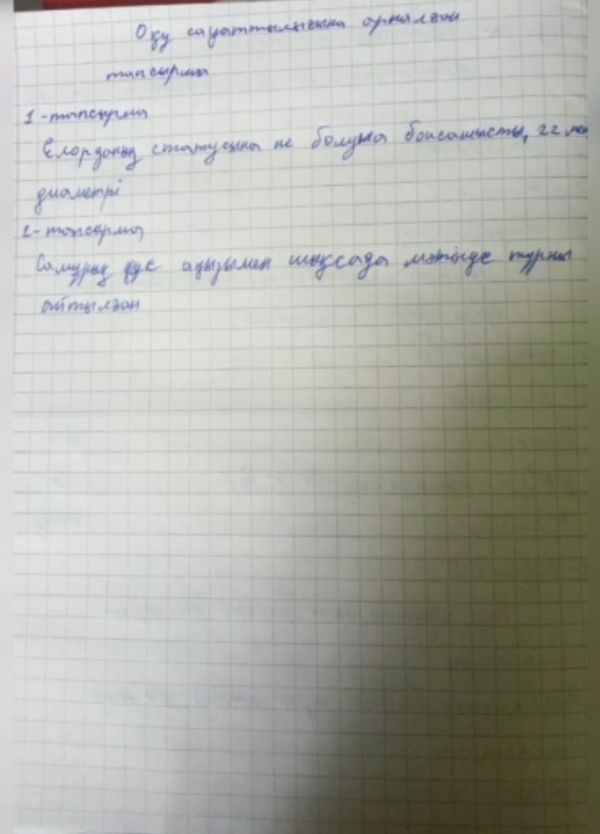 Оқу сауаттылығына арналған
тапсырма
1-тапсырма
Елорданың статусына ие болуына байланысты, 22 мен
диаметрі
2-тапсырма
Самұрық құс аңызымен шықсада мәтінде туралы
айтылған